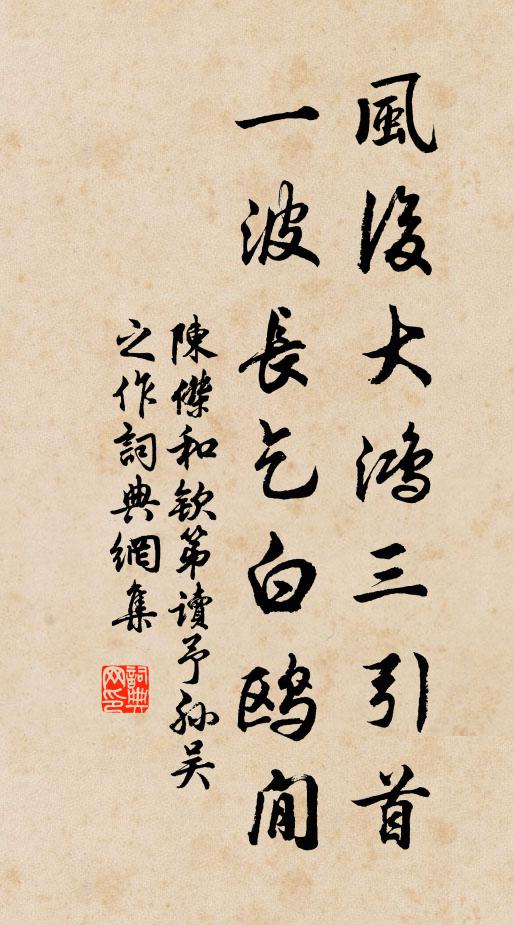 風後大鴻三引首
一波長乞白鷗閒
陳傑和欽第讀予孫吴
之作詞典網集
詞典网印